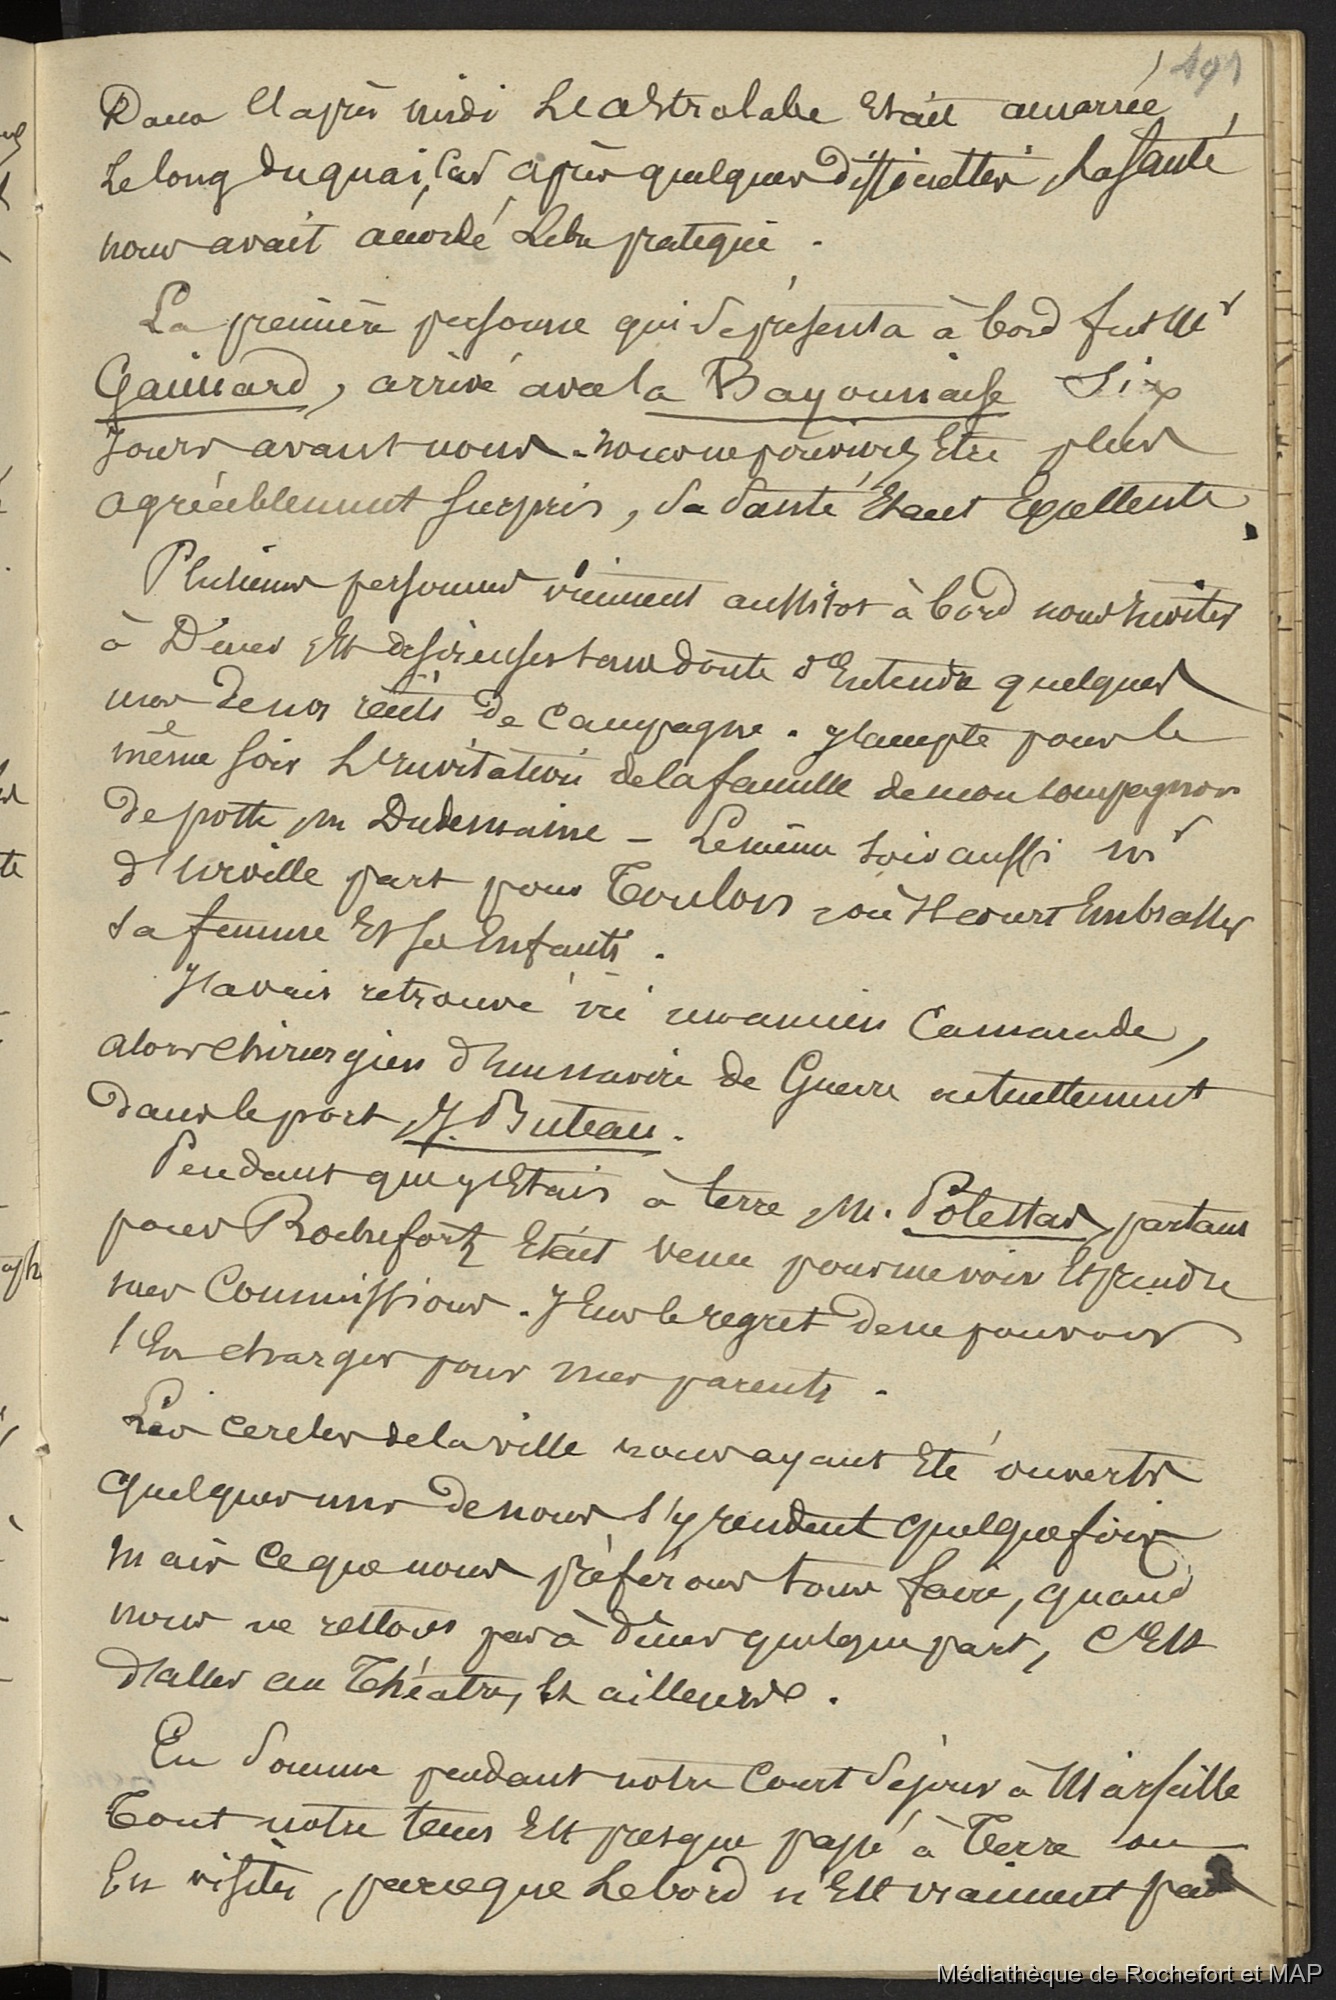 191
Dans l'après midi L'Astrolabe Etait amarrée,
Le long du quai, Car après quelques difficultés, La Santé
nous avait accordé Libre pratique.
La première personne qui se présenta à bord fut Mr
Gaimard, arrivé avec la Bayonnaise Six
Jours avant nous. nous ne pouvions Etre plus
agréablement surpris, sa santé Etant Excellente.
Plusieurs personnes viennent aussitot à bord nous Inviter
à Diner Et désireuses sans doute d'Entendre quelques
uns de nos récits de Campagne. J'accepte pour le
même soir L'Invitation de la famille de mon compagnon
de poste, M Dudemaine - Le même soir aussi Mr
d'Urville part pour Toulon, où Il court Embrasser
sa femme Et ses Enfants.
J'avais retrouvé ici un ancien Camarade,
alors chirurgien d'un navire de Guerre actuellement
dans le port, J. Buteau.
Pendant que j'Etais à terre, M. Polestas, partant
pour Rochefort, Etait venu pour me voir Et prendre
mes Commissions. J'Eus le regret de ne pouvoir
l'En charger pour mes parents.
Les cercles de la ville nous ayant Eté ouverts
quelques uns de nous s'y rendent quelquefois
Mais ce que nous préférons tous faire, quand
nous ne restons pas à diner quelque part, C'Est
d'aller au Théatre, Et ailleurs.
En somme pendant notre Court Séjour à Marseille
Tout notre tems Est presque passé à Terre ou
En visites, parce que Le bord n'Est vraiment pas
Médiathèque de Rochefort et MAP